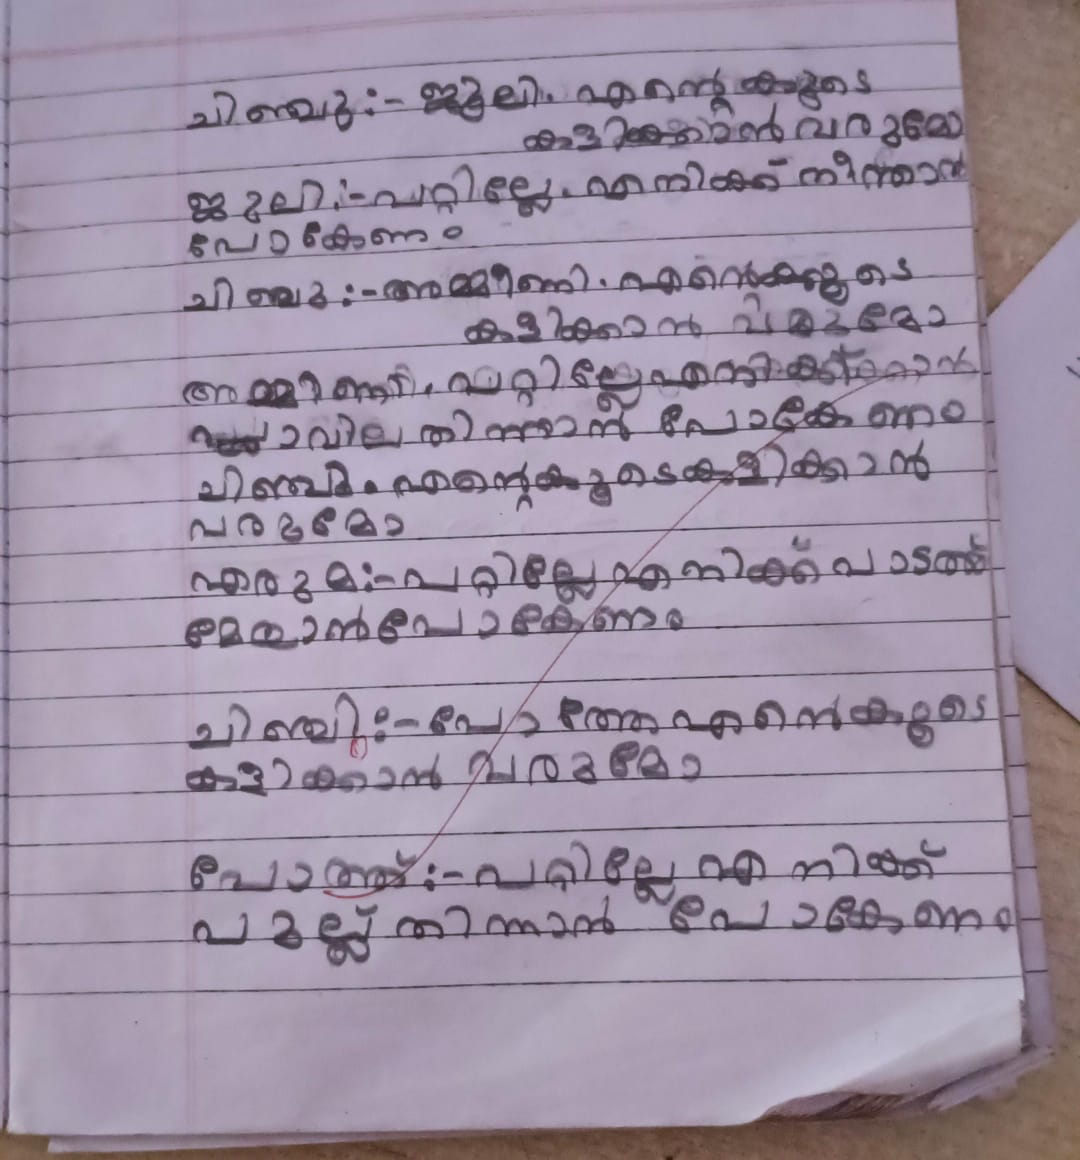 ചിഞ്ചു:- ജൂലി. എന്റെ കൂടെ
കളിക്കാൻ വരുമോ
ജൂലി:- പറ്റില്ലേ. എനിക്ക് നീന്താൻ
പോകേണം
ചിഞ്ചു:- അമ്മിണി. എന്റെകൂടെ
കളിക്കാൻ വരുമോ
അമ്മിണി. പറ്റില്ലേഎനിക്ക്
പ്ലാവില തിന്നാൻ പോകേണം
ചിഞ്ചു. എന്റെകൂടെകളിക്കാൻ
വരുമോ
എരുമ:- പറ്റില്ലേഎനിക്ക് പാടത്ത്
മേയാൻപോകേണം
ചിഞ്ചു:- പോത്തേഎന്റെകൂടെ
കളിക്കാൻ വരുമോ
പോത്ത്:- പറ്റില്ലേ എനിക്ക്
പുല്ല് തിന്നാൻ പോകേണം